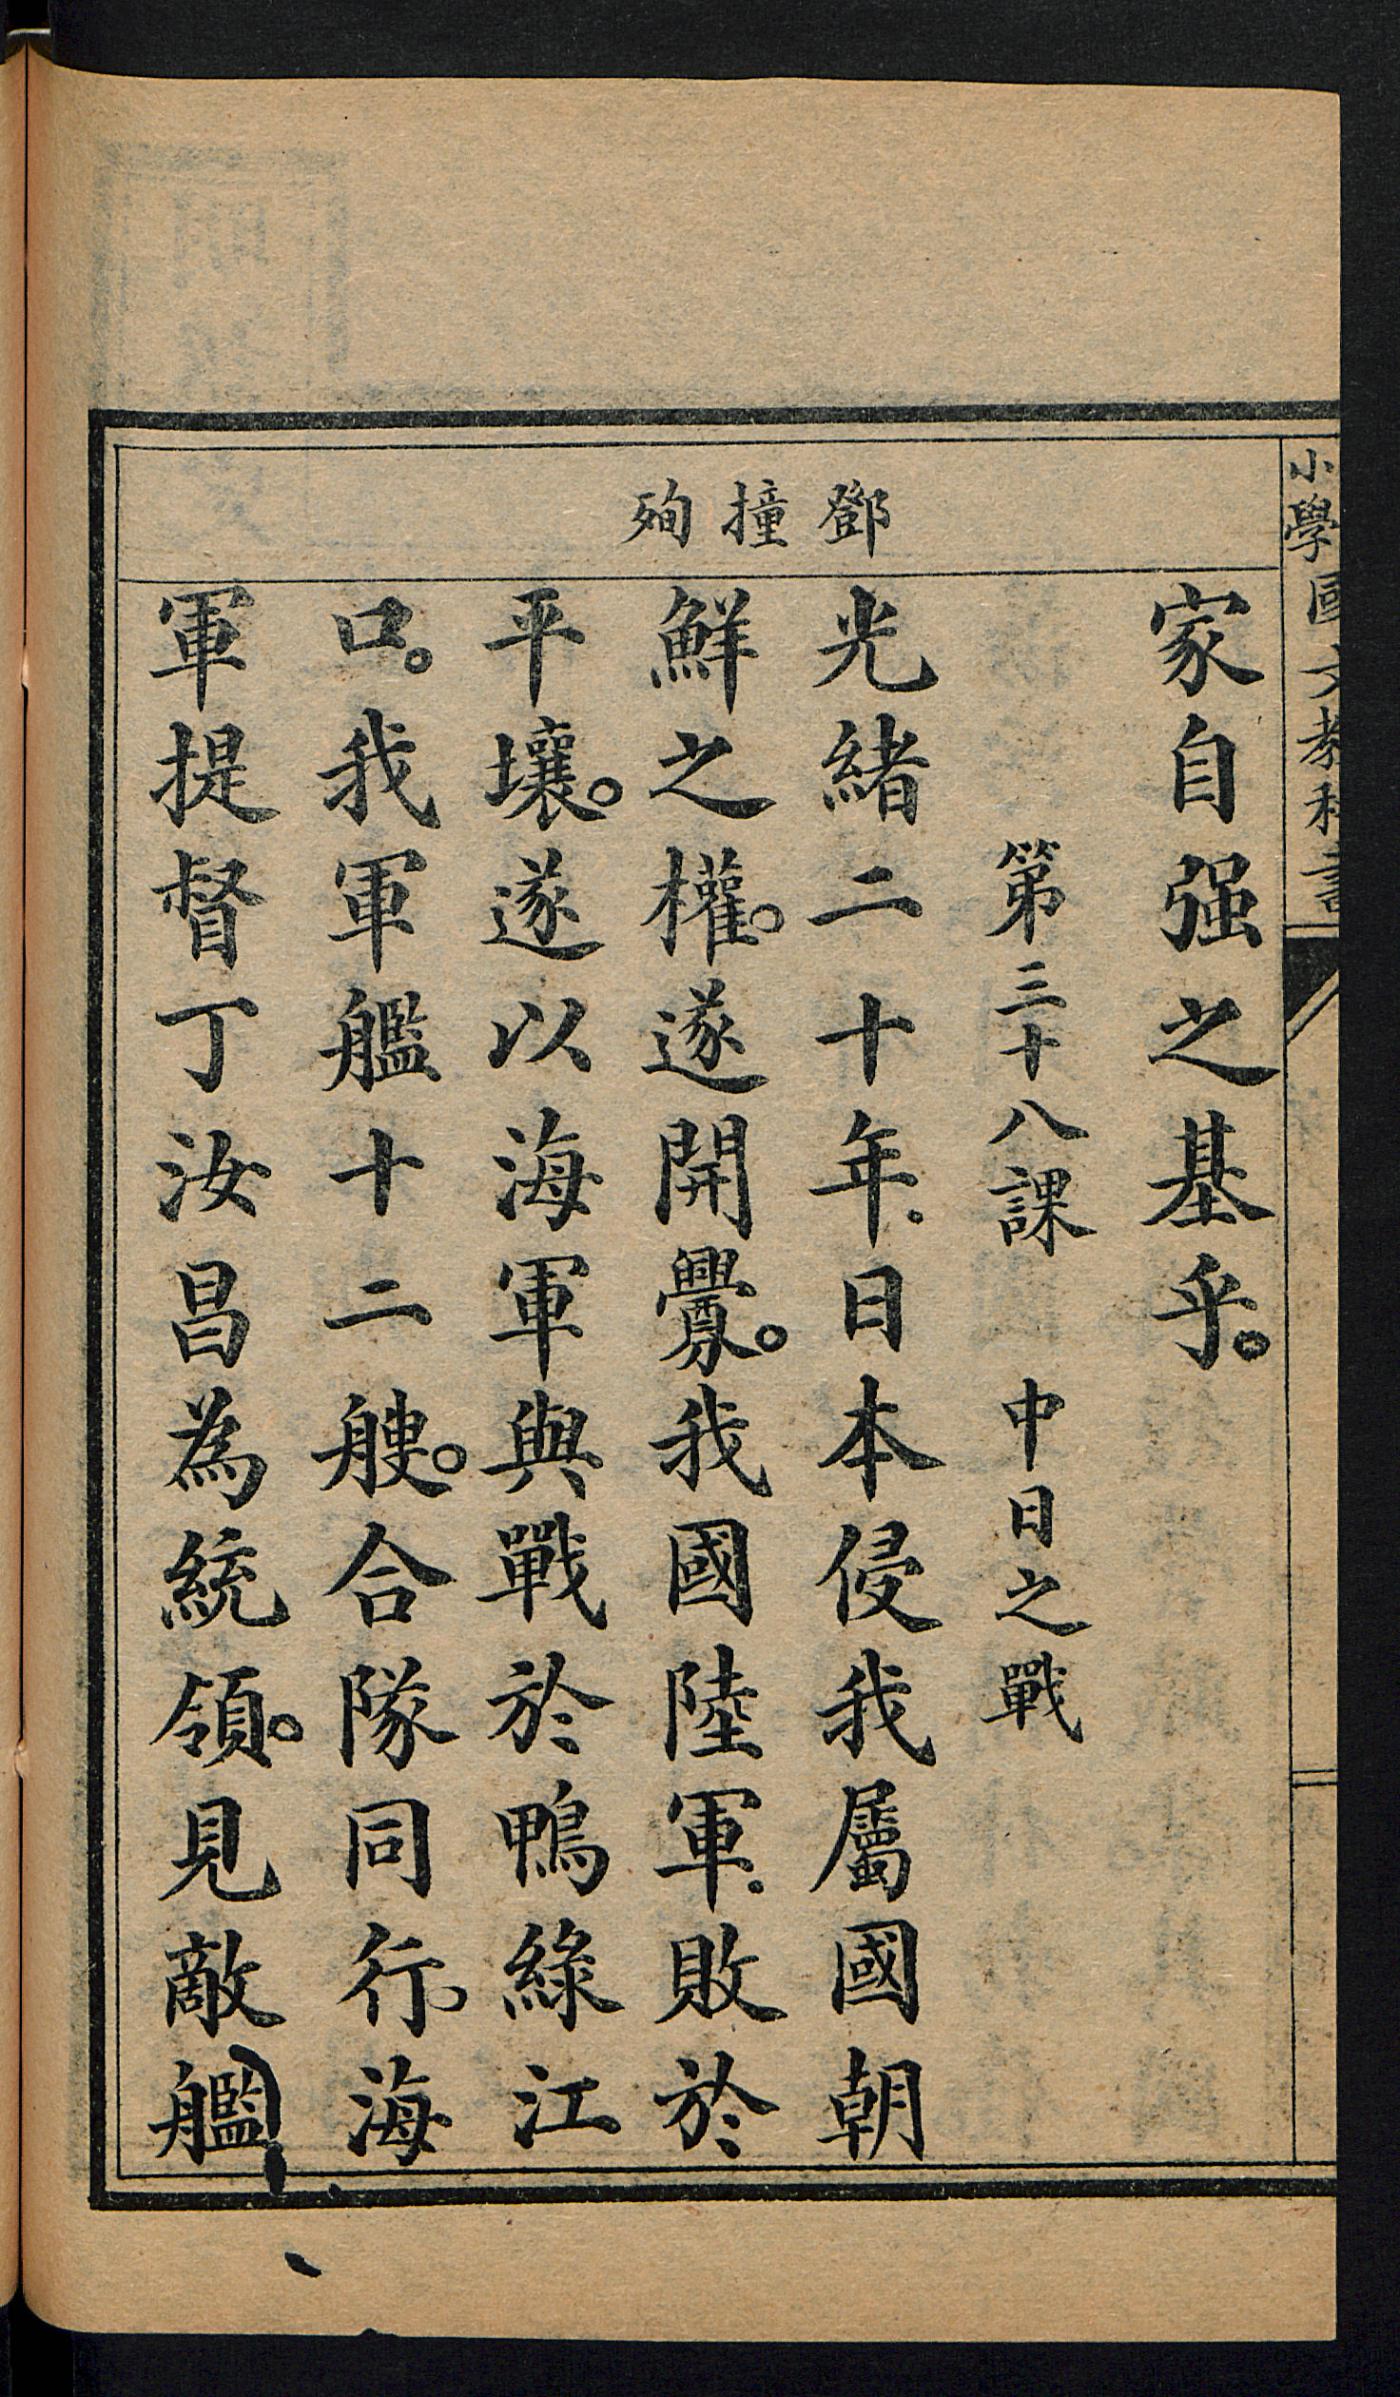 小學國文教科書
鄧撞殉
家自强之基乎。
第三十八課　中日之戰
光緒二十年．日本侵我屬國朝
鮮之權。遂開釁。我國陸軍．敗於
平壤。遂以海軍與戰於鴨綠江
口。我軍艦十二艘。合隊同行、海
軍提督丁汝昌為統領。見敵艦